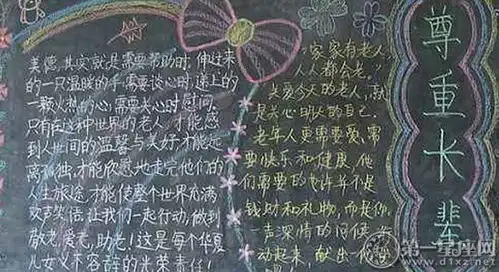 美德,其实就是需要帮助时,伸过来
的一只温暖的手,需要谈心时,递上的
一颗火热的心,需要关心时慰问.
只有在这种世界的老人,才能感
到人世间的温馨与美好,才能远
离孤独,才能欣慰地走完他们的
人生旅途,才能使整个世界充满
欢声笑语,让我们一起行动,做到
敬老,爱老,助老!这是每个华夏
儿女义不容辞的光荣责任!
家家有老人,
人人都会老.
关爱今天的老人,就
是关心明天的自己.
老年人更需要爱,需
要快乐和健康,他
们需要的也许并不是
钱助和礼物,而是你
一声深情的问候,
动起来,献出你
尊重长辈
第一星座网
www.d1xz.net